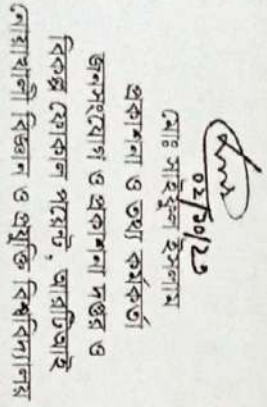 ০২/১০/২৩
মোঃ সাইফুল ইসলাম
প্রকাশনা ও তথ্য কর্মকর্তা
জনসংযোগ ও প্রকাশনা দপ্তর ও
বিকল্প ফোকাল পয়েন্ট, আরটিআই
নোয়াখালী বিজ্ঞান ও প্রযুক্তি বিশ্ববিদ্যালয়